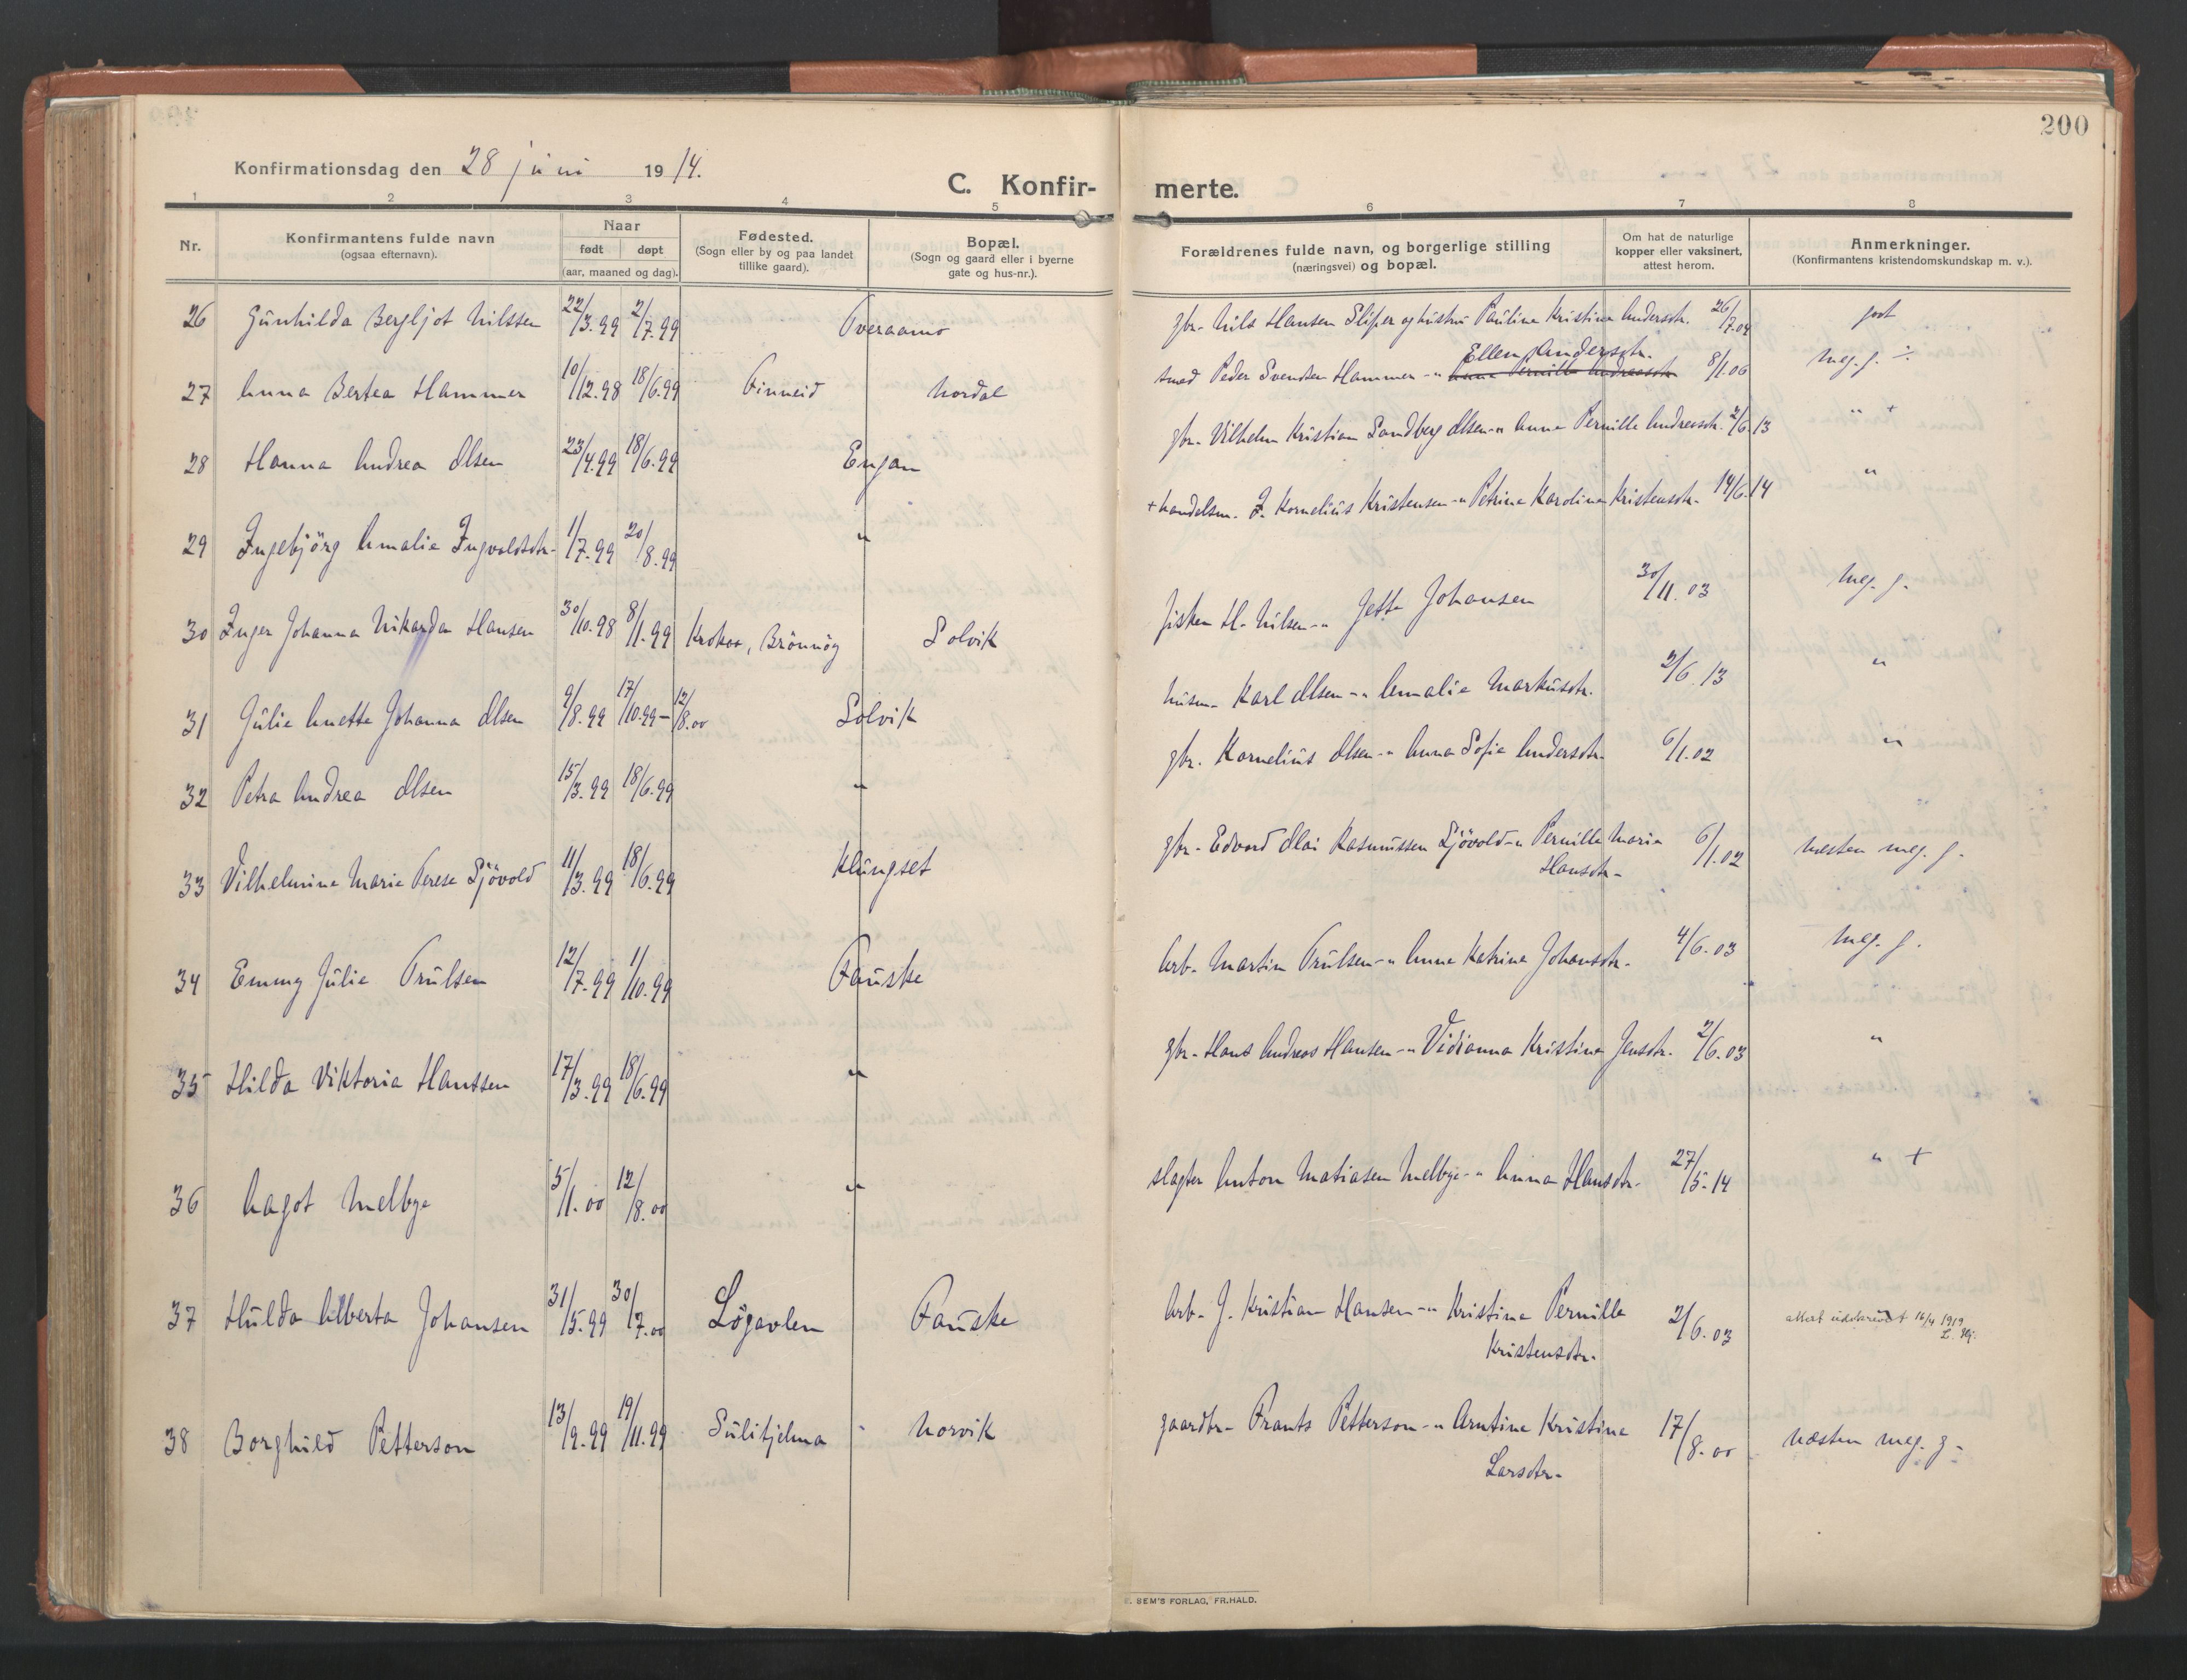 200
Konfirmationsdag den 28 juni 1914.
C. Konfir- merte.
1 2 3 4 5 6 7 8
Nr. Konfirmantens fulde navn (ogsaa efternavn). Naar født døpt (aar, maaned og dag). Fødested. (Sogn eller by og paa landet tillike gaard). Bopæl. (Sogn og gaard eller i byerne gate og hus-nr.). Forældrenes fulde navn, og borgerlige stilling (næringsvei) og bopæl. Om hat de naturlige kopper eller vaksinert, attest herom. Anmerkninger. (Konfirmantens kristendomskundskap m. v.).
26 Gunhilda Bergljot Nilssen 22/3.99 2/7.99 Tveraamo gbr. Nils Hansen Sliper og hustru Pauline Kristine Andersdtr. 26/7.04 godt
27 Anna Bertea Hammer 10/12.98 18/6.99 Finneid Nordal smed Peder Svendsen Hammer -"- Anna Pernille Andreasdtr Ellen Andersdtr. 8/1.06 meg. g. ÷
28 Hanna Andrea Olsen 23/4.99 18/6.99 Engan gbr. Vilhelm Kristian Sandberg Olsen -"- Anna Pernille Andreasdtr. 2/6.13 " +
29 Ingebjörg Amalie Ingvaldsdtr. 1/7.99 20/8.99 " + handelsm. I. Kornelius Kristensen -"- Petrine Karoline Kristensdtr. 14/6.14 "
30 Inger Johanna Nikarda Hansen 30/10.98 8/1.99 Krokaa, Brönnöy Solvik fisker H. Nilsen -"- Jette Johansen 30/11.03 meg. g.
31 Julie Anette Johanna Olsen 9/8.99 17/10.99 – 12/8.00 Solvik husm. Karl Olsen -"- Amalie Markusdtr. 2/6.13 "
32 Petra Andrea Olsen 15/3.99 18/6.99 " gbr. Kornelius Olsen -"- Anna Sofie Andersdtr. 6/1.02 "
33 Vilhelmine Marie Perese Sjövold 11/3.99 18/6.99 Klungset gbr. Edvard Olai Rasmussen Sjövold -"- Pernille Marie Hansdtr. 6/1.02 næsten meg. g.
34 Emmy Julie Trulsen 12/7.99 1/10.99 Fauske Arb. Martin Trulsen -"- Anne Katrine Johansdtr. 4/6.03 meg. g.
35 Hilda Viktoria Hanssen 17/3.99 18/6.99 " gbr. Hans Andreas Hansen -"- Vidianna Kristine Jensdtr. 2/6.03 "
36 Aagot Melbye 5/1.00 12/8.00 " slagter Anton Matiasen Melbye -"- Anna Hansdtr. 27/5.14 " +
37 Hulda Alberta Johansen 31/5.99 30/7.00 Löjavlen Fauske Arb. J. Kristian Hansen -"- Kristine Pernille Kristensdtr. 2/6.03 attest utskrevet 16/4 1919
38 Borghild Petterson 13/9.99 19/11.99 Sulitjelma Norvik gaardbr. Frants Petterson -"- Arntine Kristine Larsdtr. 17/8.00 næsten meg. g.
E. SEM'S FORLAG, FR.HALD.